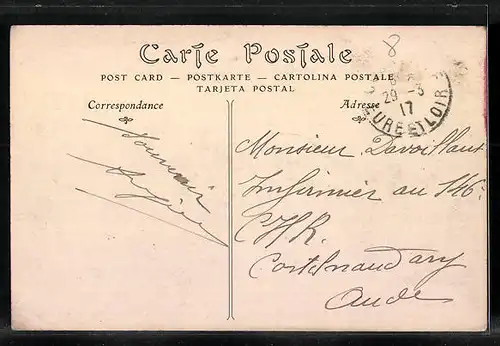 8
Carte Postale
POST CARD — POSTKARTE — CARTOLINA POSTALE
TARJETA POSTAL
Correspondance
Adresse
29 - 3
17
EURE ET LOIR
Souvenir
Monsieur Davoillant
Infirmier au 146e
Castelnaudary
Aude